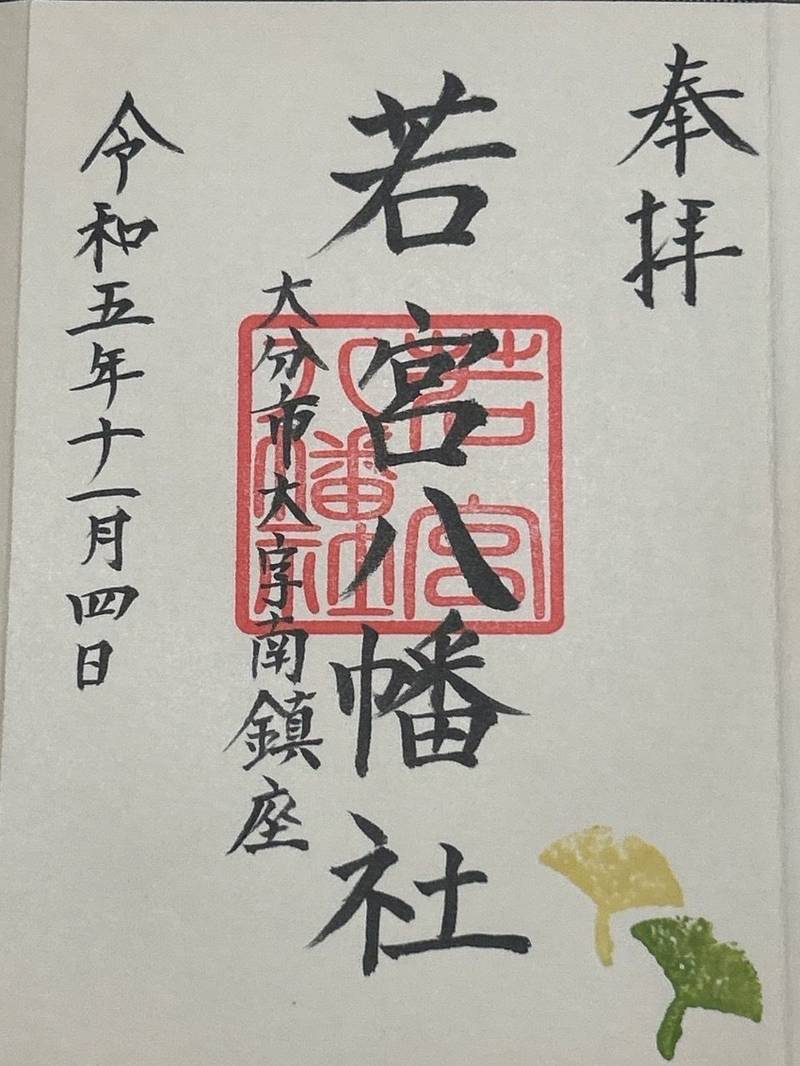 奉拝
若宮八幡社
若宮
八幡社
大分市大字南鎮座
令和五年十一月四日